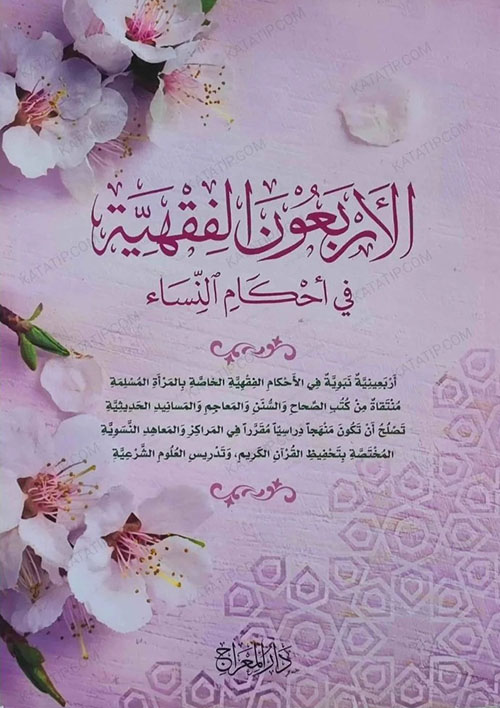 الأربعون الفقهية
في أحكام النساء
أَرْبَعِينِيَّةٌ نَبَوِيَّةٌ فِي الأَحْكَامِ الفِقْهِيَّةِ الخَاصَّةِ بِالمَرْأَةِ المُسْلِمَةِ
مُنْتَقَاةٌ مِنْ كُتُبِ الصِّحَاحِ وَالسُّنَنِ وَالمَعَاجِمِ وَالمَسَانِيدِ الحَدِيثِيَّةِ
تَصْلُحُ أَنْ تَكُونَ مَنْهَجاً دِرَاسِيّاً مُقَرَّراً فِي المَرَاكِزِ وَالمَعَاهِدِ النِّسْوِيَّةِ
المُخْتَصَّةِ بِتَحْفِيظِ القُرْآنِ الكَرِيمِ، وَتَدْرِيسِ العُلُومِ الشَّرْعِيَّةِ
دار المعراج
KATATIP.COM